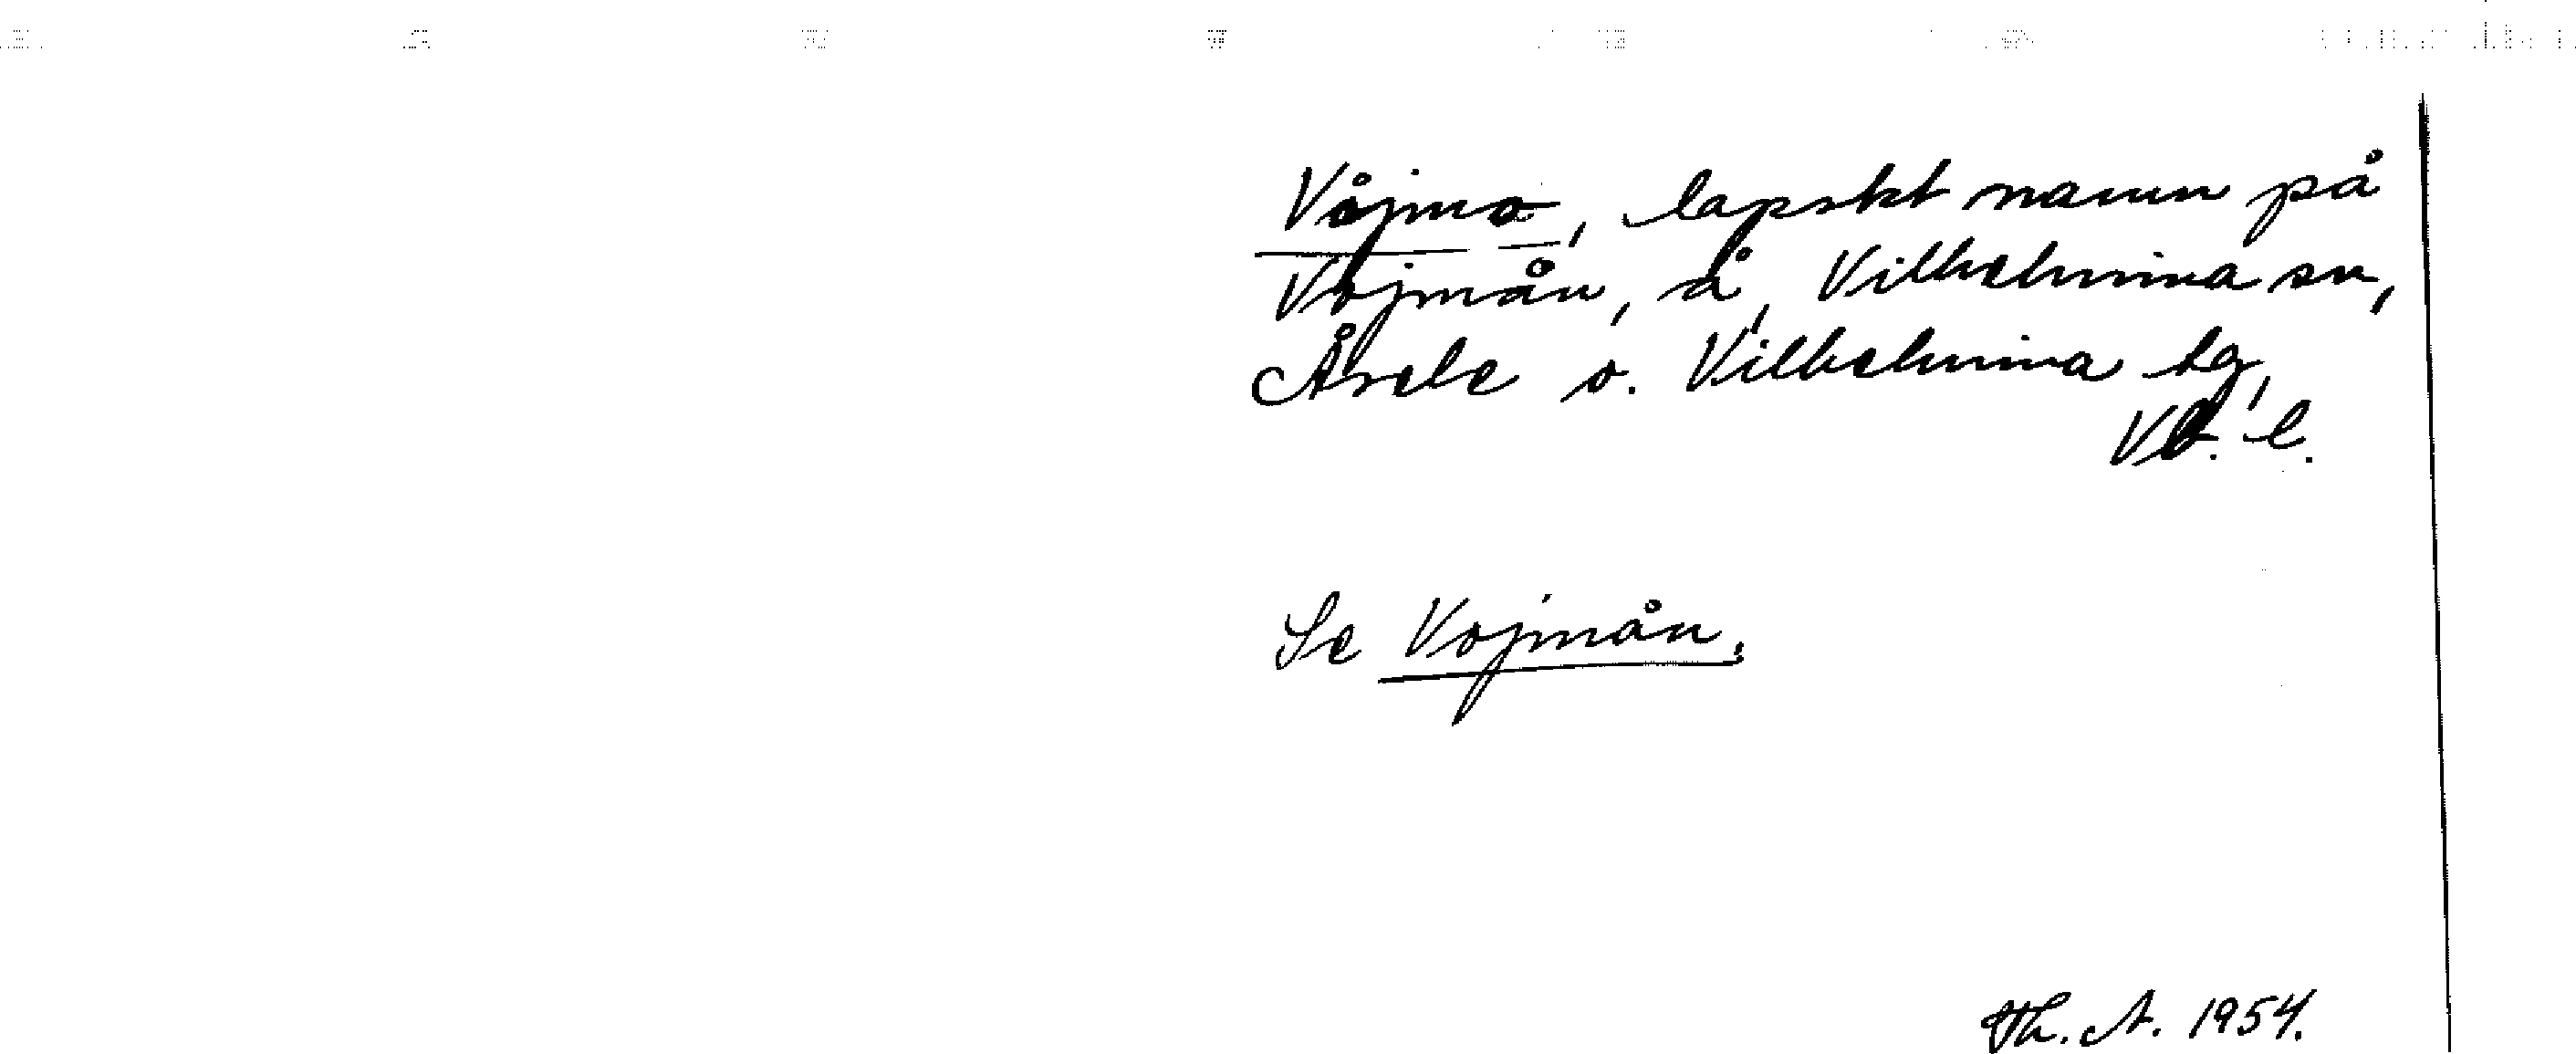 Våjmo, lapskt namn på
Vojmån, å, Vilhelmina sn,
Åsele o. Vilhelmina tg,
Vb. l.
Se Vojmån.
Th. A. 1954.